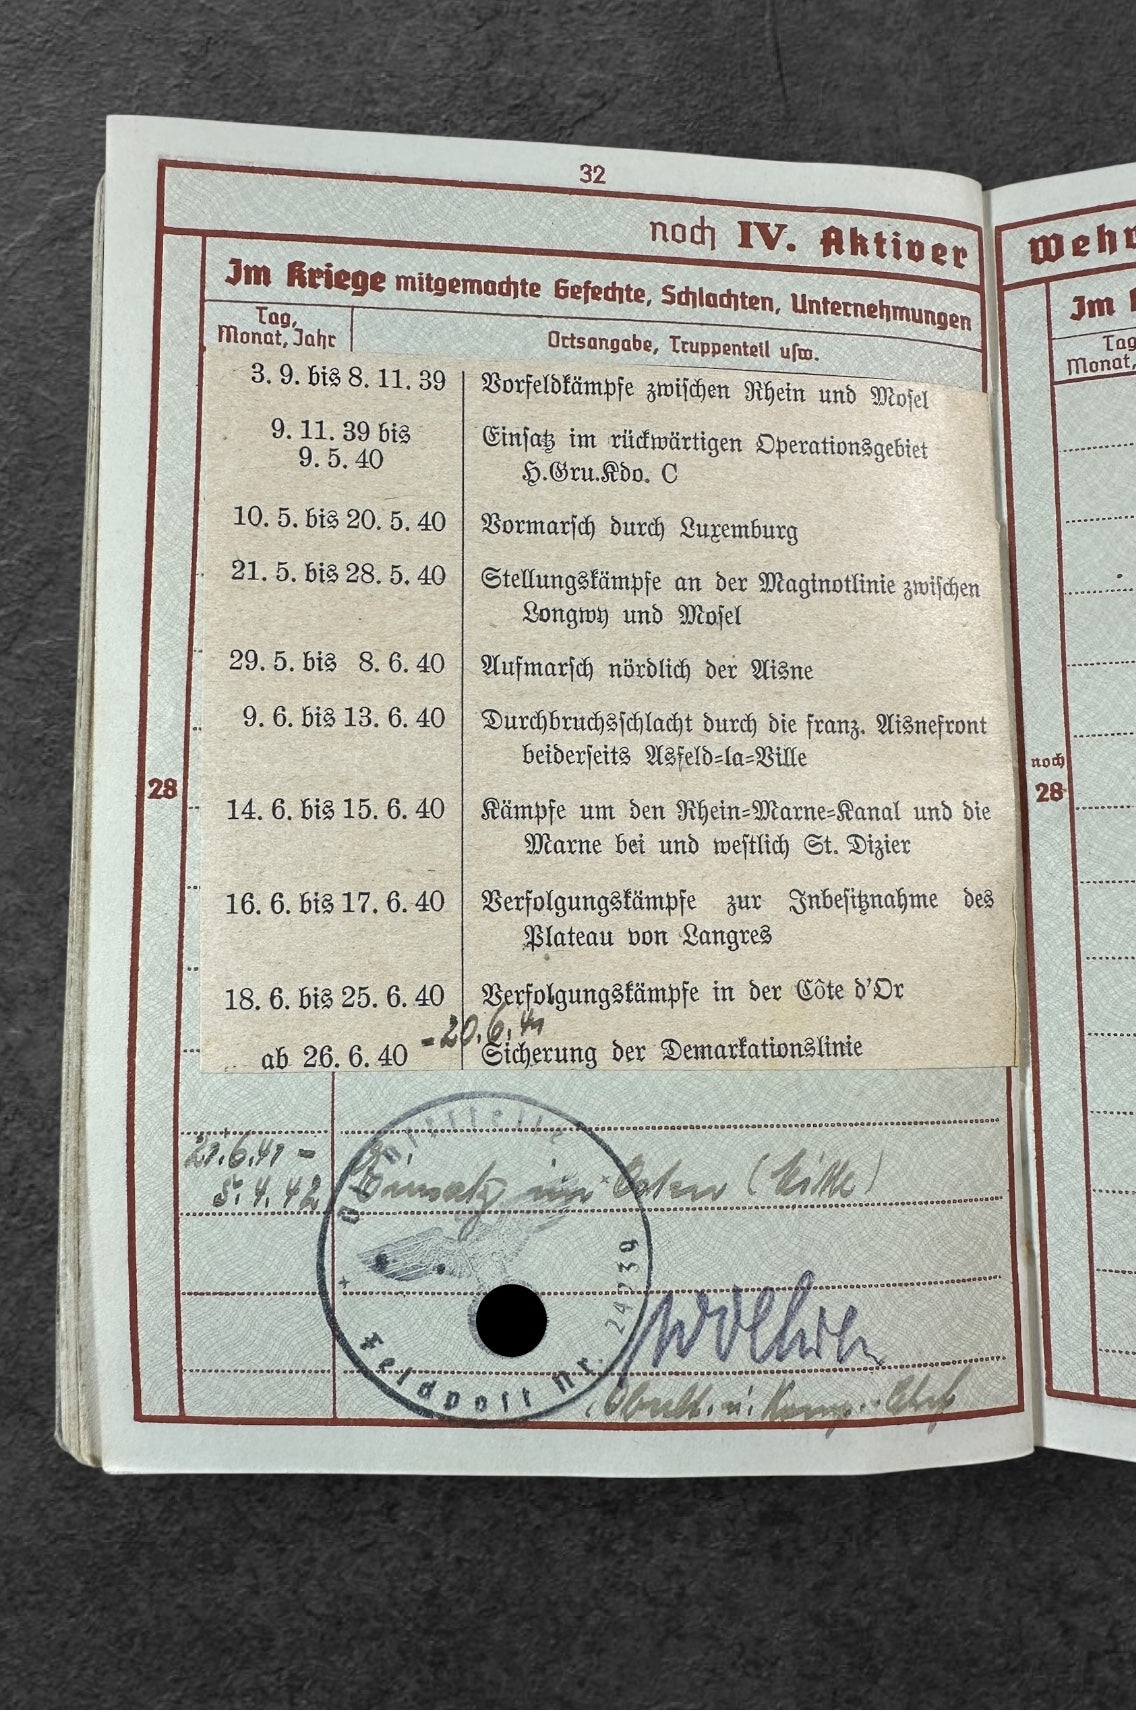 32
noch IV. Aktiver
Im Kriege mitgemachte Gefechte, Schlachten, Unternehmungen
Tag,
Monat, Jahr
Ortsangabe, Truppenteil usw.
3. 9. bis 8. 11. 39 Vorfeldkämpfe zwischen Rhein und Mosel
9. 11. 39 bis Einsatz im rückwärtigen Operationsgebiet
9. 5. 40 H.Gru.Kdo. C
10. 5. bis 20. 5. 40 Vormarsch durch Luxemburg
21. 5. bis 28. 5. 40 Stellungskämpfe an der Maginotlinie zwischen
Longwy und Mosel
29. 5. bis 8. 6. 40 Aufmarsch nördlich der Aisne
9. 6. bis 13. 6. 40 Durchbruchsschlacht durch die franz. Aisnefront
beiderseits Asfeld=la=Ville
28
14. 6. bis 15. 6. 40 Kämpfe um den Rhein=Marne=Kanal und die
Marne bei und westlich St. Dizier
16. 6. bis 17. 6. 40 Verfolgungskämpfe zur Inbesitznahme des
Plateau von Langres
18. 6. bis 25. 6. 40 Verfolgungskämpfe in der Côte d'Or
- 20. 6. 41
ab 26. 6. 40 Sicherung der Demarkationslinie
21.6.41 -
5. 4. 42 Einsatz im Osten (Mitte)
Feldpost Nr. 24239
Oblt. u. Komp. Chef
Wehr
Im K
Tag
Monat,
noch
28